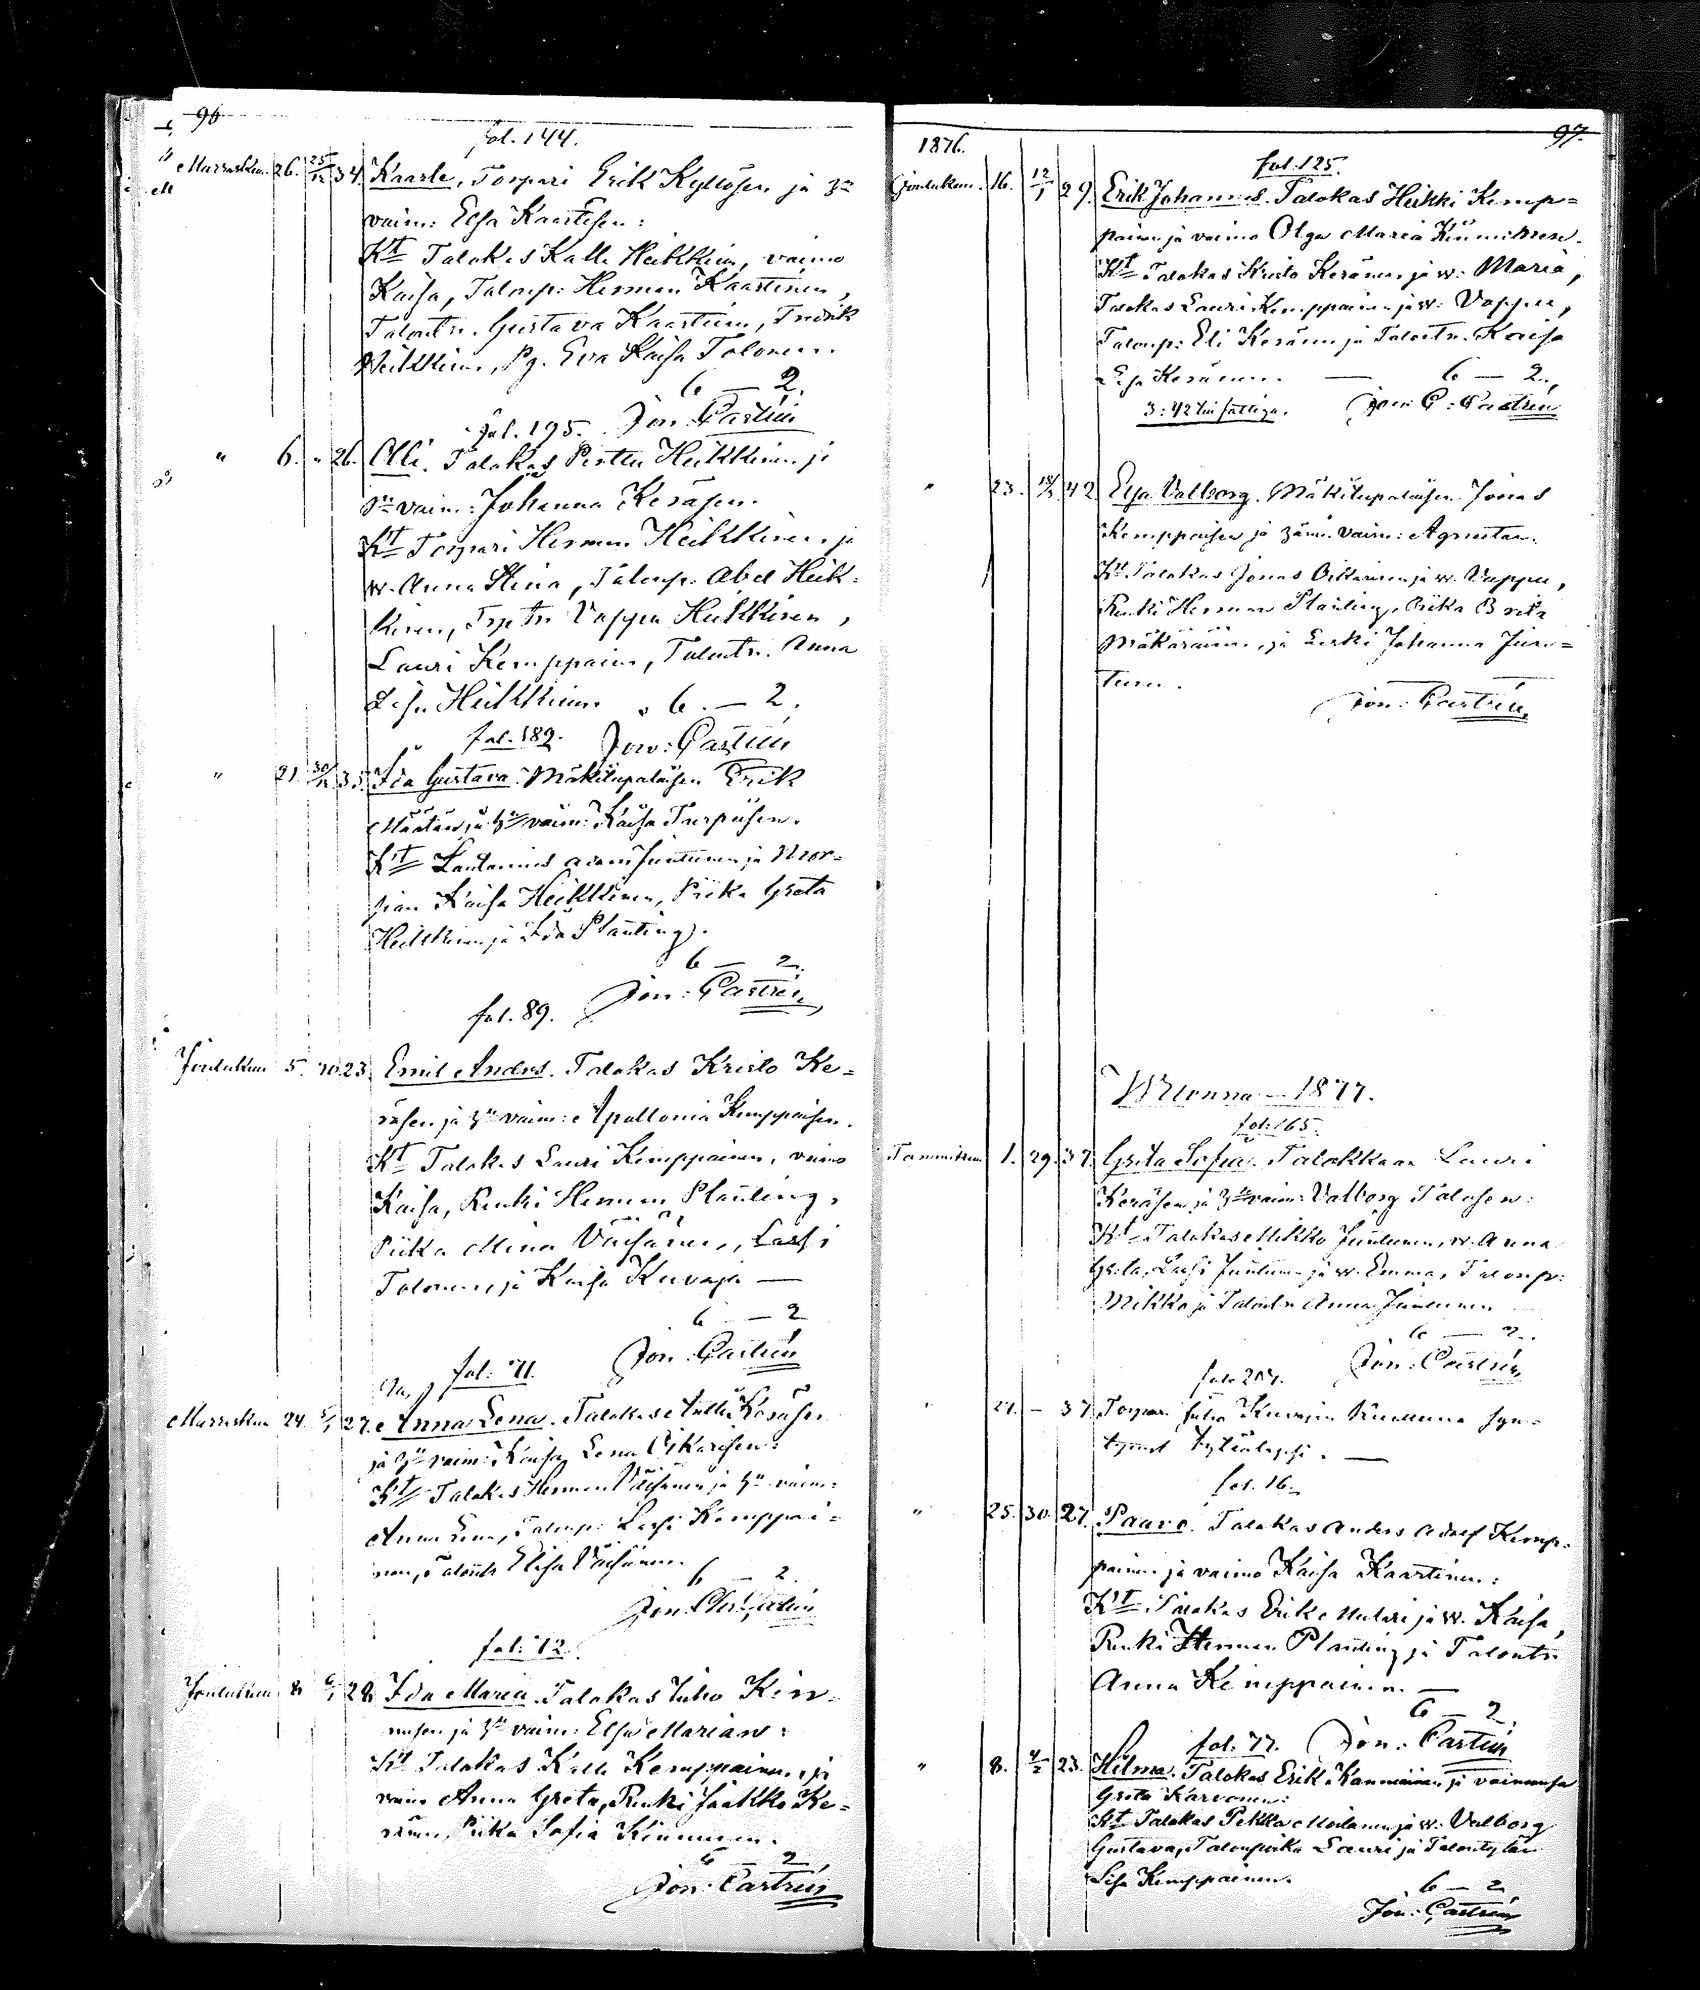 96
fol. 144.
Marraskuu 26. 25/12 34. Kaarle, Torpari Erik Kyllösen ja 3n
vaim: Elsa Kaartisen:
Kt Talokas Kalle Heikkinen, vaimo
Kaisa, Talonp: Herman Kaartinen,
Talontr. Gustava Kaartinen, Fredrik
Heikkinen, Pg. Eva Kaisa Tolonen.
6 — 2.
Jon. Castrén
fol. 195.
" 6. " 26. Olli. Talokas Perttu Heikkinen ja
vaim: Johanna Keräsen.
Kt Torpari Herman Heikkinen ja
w. Anna Stina, Talonp: Abel Heik-
kinen, Trp tr. Vappu Heikkinen,
Lauri Kemppainen, Talontr. Anna
Lisa Heikkinen. 6 — 2.
fol. 189. Jon: Castrén
" 21. 30/12 35. Ida Gustava. Mäkitupalaisen Erik
Määtän ja hn vaim: Kaisa Turpeisen.
Kt Lautamies Adam Juntunen ja Mior-
sian Kaisa Heikkinen, Piika Greta
Heikkinen ja Ida Planting).
6 — 2.
Jon: Castrén
fol. 89.
Joulukuu 5. 23. Emil Anders. Talokas Kristo Ke-
räsen ja hn vaim: Apollonia Kemppaisen.
Kt Talokas Lauri Kemppainen, vaimo
Kaisa, Renki Herman Planting,
Piika Mina Väisänen, Lassi
Tolonen, ja Kaisa Kuvaja —
6 — 2
Jon: Castrén
fol: 71.
Marraskuu 24. 27. Anna Lena. Talokas Antti Keräsen
ja hn vaim: Kaisa Lena Oikarisen:
Kt Talokas Herman Väisänen ja hn vaim:
Anna Lena, Talonp: Lassi Kemppai-
nen, Talontr Elisa Väisänen.
6 — 2.
Jon: Castrén
fol: 12.
Joulukuu 8. 28. Ida Maria. Talokas Juho Kin-
nusen ja hn vaim: Elsa Marian:
Kt Talokas Kalle Kemppainen ja
vaimo Anna Greta, Renki Jaakko Ke-
ränen, Piika Sofia Kinnunen.
6 — 2,
Jon: Castrén
97.
1876.
fol. 125.
Joulukuu. 16. 12/1 29. Erik Johannes. Talokas Heikki Kemp-
painen ja vaimo Olga Maria Kinnunen.
Kt Talokas Kristo Keränen ja w: Maria,
Talokas Lauri Kemppainen ja w: Vappu,
Talonp: Eli Keränen ja Talontr. Kaisa
Keränen. — 6 — 2.,
Jon: C: Castrén
" 23. 42 Elsa Valborg. Mäkitupalaisen Jonas
Kemppaisen ja vaim: Agnetan.
Kt Talokas Jonas Oikarinen ja w. Vappu,
Renki Herman Planting, Piika Brita
Mäkäräinen, ja Leski Johanna Jun-
tunen.
Jon: Castrén
Wuonna — 1877.
fol: 165.
Tammikuu 1. 29. 37. Greta Sofia. Talokkaan Lauri
Keräsen ja hn vaim: Valborg Talosen:
Kt Talokas Mikko Juntunen, w. Anna
Greta, Lassi Juntunen ja w: Emma, Talonp:
Mikko ja Talontr Anna Juntunen
6 — 2.
Jon: Castrén
" 21. — 37. Torpar. Juho Kuvajan Kuolluna syn-
tynyt tytärlapsi. —
fol. 16.
" 25. 30. 27. Paavo. Talokas Anders Adolf Kemp-
painen ja vaimo Kaisa Kaartinen:
Kt Talokas Erik Mulari ja w. Kaisa,
Renki Herman Planting ja Talontr
Anna Kemppainen. —
6 — 2.
fol. 77. Jon: Castrén
" 8. 4/2 23. Hilma. Talokas Erik Kanniainen ja vaimonsa
Greta Karvonen:
Kt Talokas Pekka Moilanen ja w: Valborg
Gustava, Talonpoika Lauri ja Talontytär
Lisa Kemppainen.
6 — 2
Jon: Castrén